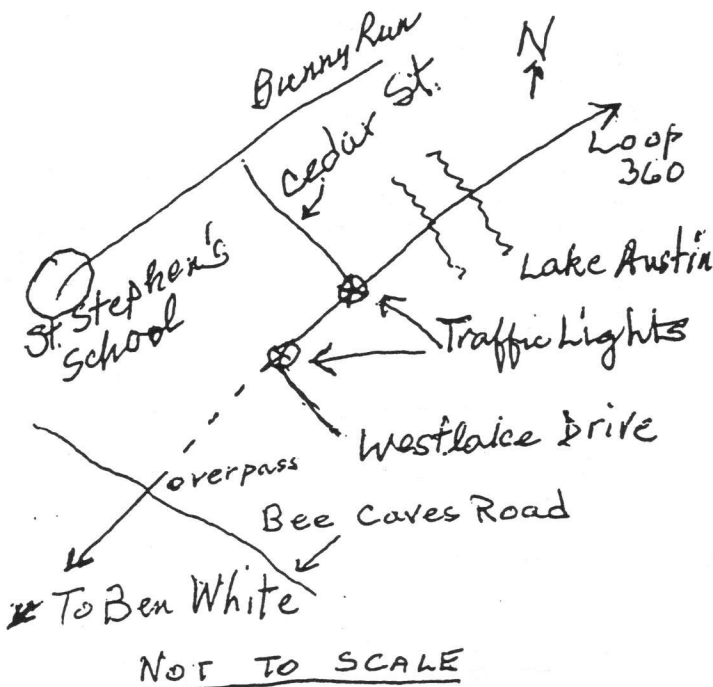 Bunny Run
Cedar St.
N
Loop
360
Lake Austin
St. Stephen's
School
Traffic Lights
Westlake Drive
overpass
Bee Caves Road
To Ben White
NOT TO SCALE